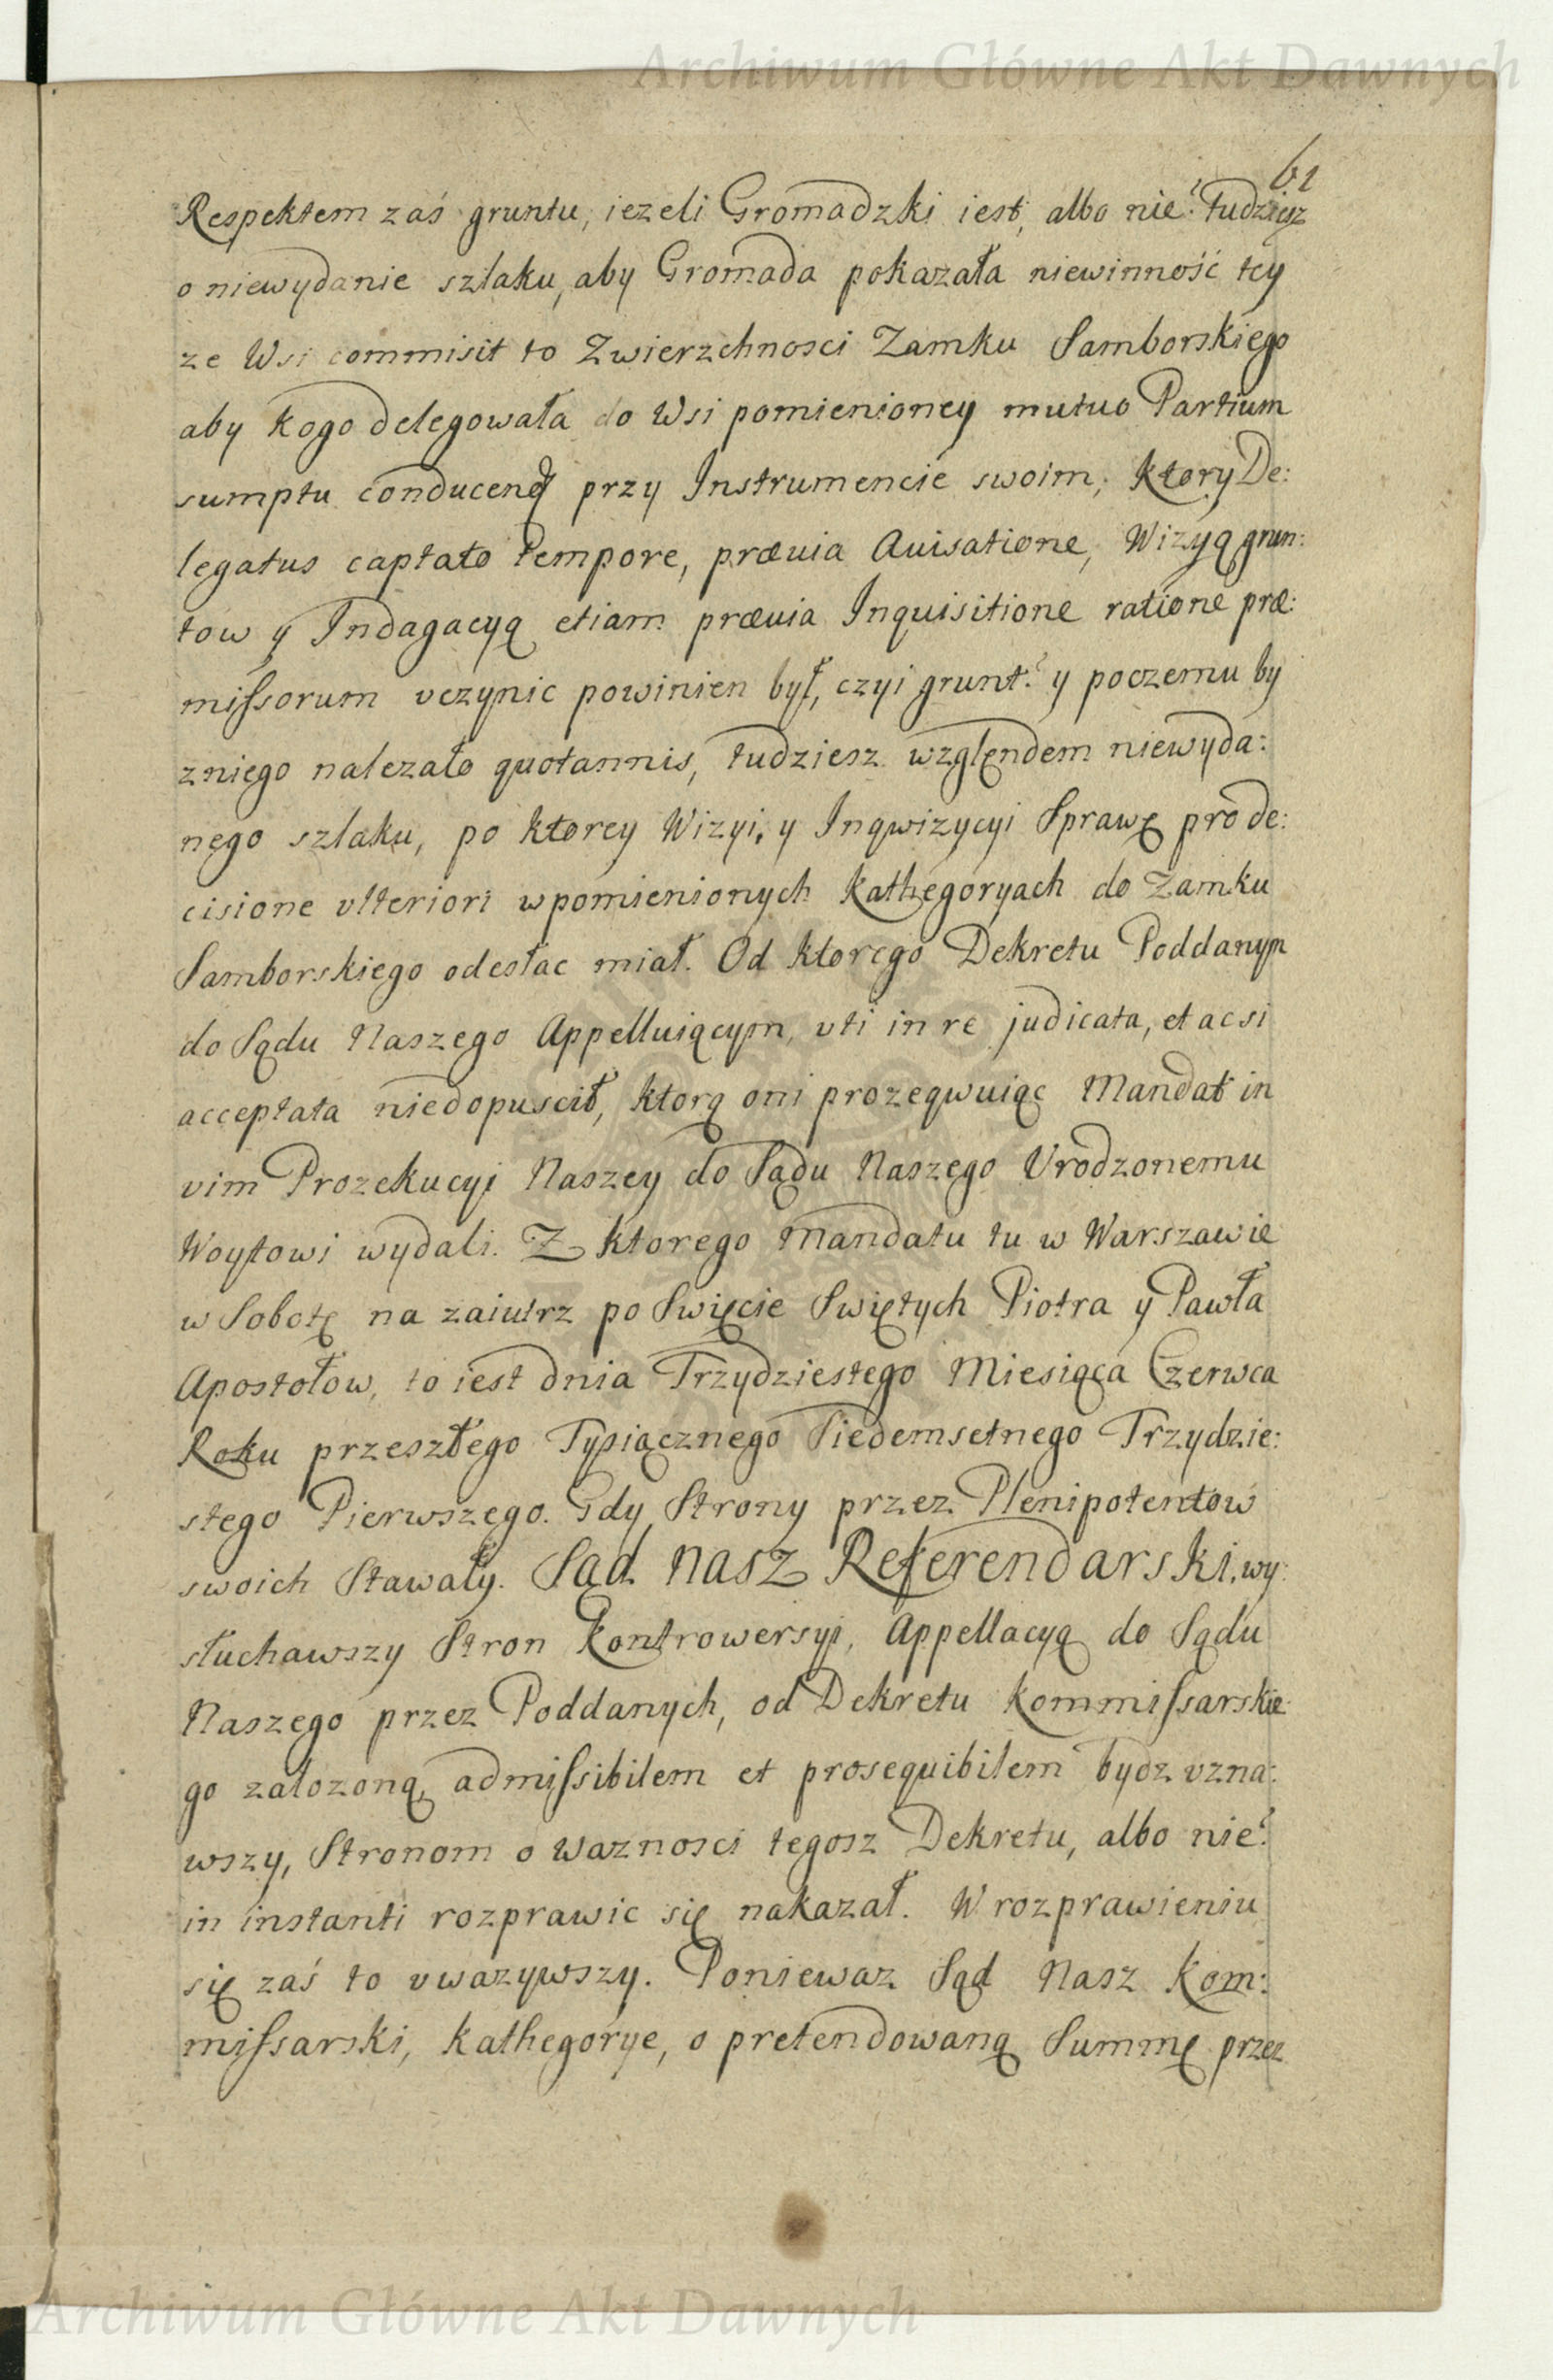 Archiwum Główne Akt Dawnych
61
Respektem zaś gruntu, iezeli Gromadzki iest, albo nie? tudziesz
o niewydanie szlaku, aby Gromada pokazała niewinność tey
ze Wsi commisit to Zwierzchnosci Zamku Samborskiego
aby kogo delegowała do Wsi pomienioney mutuo Partium
sumptu conducend przy Instrumencie swoim, ktory De:
legatus captato tempore, prævia Avisatione, Wizyą grun:
tow y Indagacyą etiam prævia Inquisitione ratione præ:
miſsorum vczynic powinien był, czyi grunt? y poczemu by
zniego nalezało quotannis, tudziesz wzglęndem niewyda:
nego szlaku, po ktorey Wizyi, y Inqwizycyi Sprawę pro de:
cisione vlteriori wpomienionych kathegoryach do Zamku
Samborskiego odesłac miał. Od ktorego Dekretu Poddanym
do Sądu Naszego Appelluiącym, vti in re judicata, et ac si
acceptata niedopuscił, ktorą oni prozeqwuiąc Mandat in
vim Prozekucyi Naszey do Sądu Naszego Vrodzonemu
Woytowi wydali. Z ktorego Mandatu tu w Warszawie
w Sobotę na zaiutrz po Swięcie Swiętych Piotra y Pawła
Apostołow, to iest dnia Trzydziestego Miesiąca Czerwca
Roku przeszłego Tysiącznego Siedemsetnego Trzydzie:
stego Pierwszego. Gdy Strony przez Plenipotentow
swoich Stawały. Sąd Nasz Referendarski, wy:
słuchawszy Stron kontrowersyi, Appellacyą do Sądu
Naszego przez Poddanych, od Dekretu Kommiſsarskie:
go założoną, admiſsibilem et prosequibilem bydz vzna:
wszy, Stronom o Waznosci tegosz Dekretu, albo nie?
in instanti rozprawic się nakazał. W rozprawieniu
się zaś to vwazywszy. Poniewaz Sąd Nasz Kom:
miſsarski, kathegorye, o pretendowaną Summę przez
Archiwum Główne Akt Dawnych